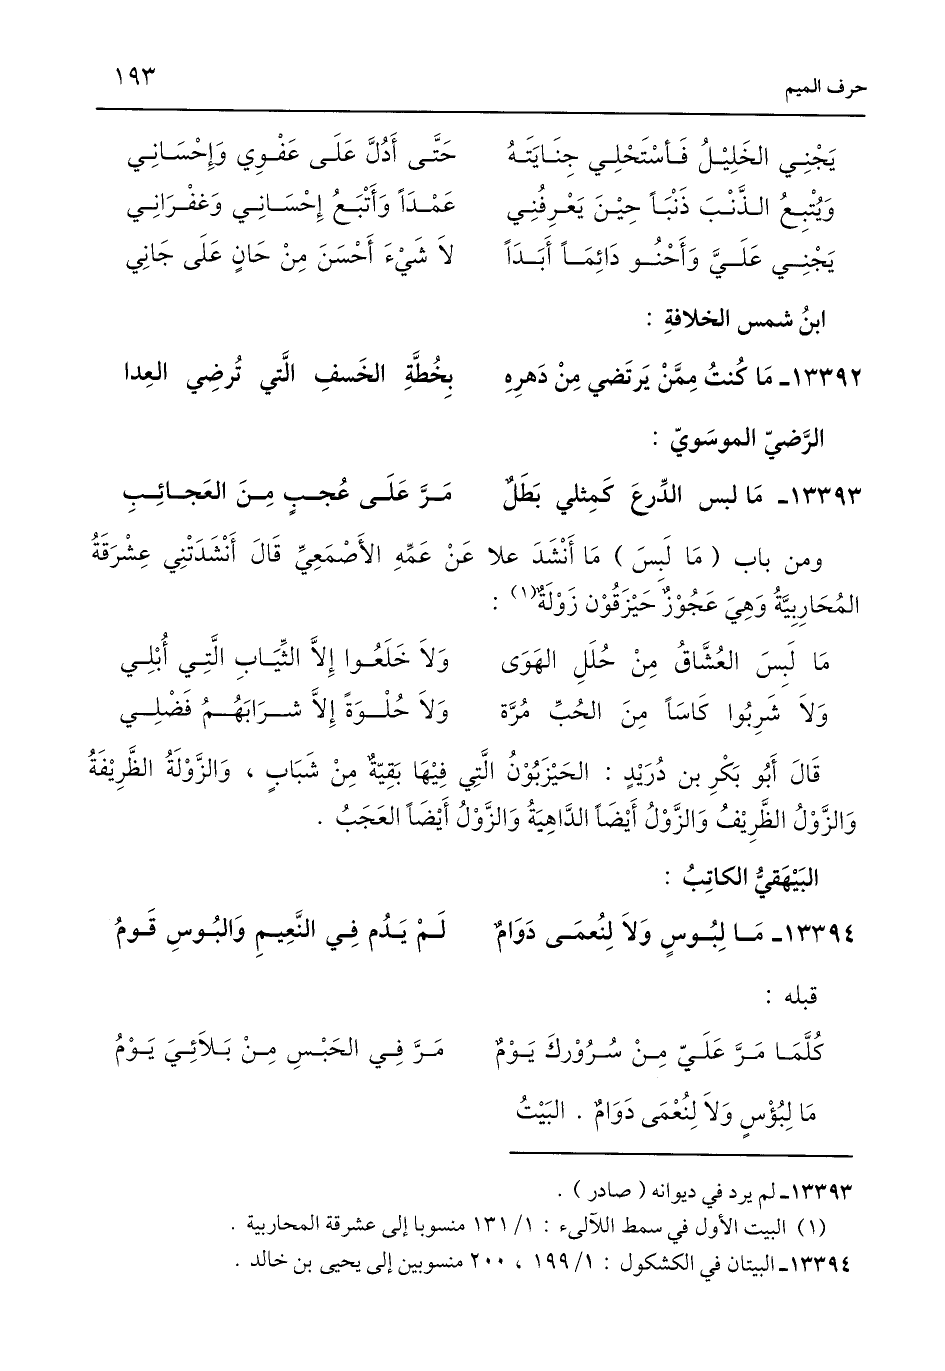 حرف الميم ١٩٣
يَجْنِي الخَلِيْلُ فَأسْتَحْلِي جِنَايَتَهُ حَتَّى أَدُلَّ عَلَى عَفْوِي وَإِحْسَانِي
وَيُتْبِعُ الذَّنْبَ ذَنْبَاً حِيْنَ يَعْرِفُنِي عَمْدَاً وَأَتْبَعُ إِحْسَانِي وَغفْرَانِي
يَجْنِي عَلَيَّ وَأَحْنُو دَائِمَاً أَبَدَاً لاَ شَيْءَ أَحْسَنَ مِنْ حَانٍ عَلَى جَانِي
ابنُ شمس الخلافةِ :
١٣٣٩٢ـ مَا كُنتُ مِمَّنْ يَرتَضي مِنْ دَهرِهِ بِخُطَّةِ الخَسف الَّتي تُرضِي العِدا
الرَّضيّ الموسَويّ :
١٣٣٩٣ـ مَا لبس الدِّرعَ كَمِثلي بَطَلٌ مَرَّ عَلَى عُجبٍ مِنَ العَجائِبِ
ومن باب ( مَا لَبِسَ ) مَا أَنْشَدَ علا عَنْ عَمِّهِ الأَصْمَعِيِّ قَالَ أَنْشَدَتْنِي عِشْرَقَةُ
المُحَارِبِيَّةُ وَهِيَ عَجُوْزٌ حَيْزَقُوْن زَوْلَةٌ(١) :
مَا لَبِسَ العُشَّاقُ مِنْ حُلَلِ الهَوَى وَلاَ خَلَعُوا إِلاَّ الثِّيَابِ الَّتِي أُبْلِي
وَلاَ شَرِبُوا كَاسَاً مِنَ الحُبِّ مُرَّة وَلاَ حُلْوَةً إِلاَّ شرَابَهُمُ فَضْلِي
قَالَ أَبُو بَكْرِ بن دُرَيْدٍ : الحَيْزَبُوْنُ الَّتِي فِيْهَا بَقِيَّةٌ مِنْ شَبَابٍ ، وَالزَّوْلَةُ الظَّرِيْفَةُ
وَالزَّوْلُ الظَّرِيْفُ وَالزَّوْلُ أَيْضَاً الدَّاهِيَةُ وَالزَّوْلُ أَيْضَاً العَجَبُ .
البَيْهَقيُّ الكاتِبُ :
١٣٣٩٤ـ مَا لِبُوسٍ وَلاَ لِنُعمَى دَوَامٌ لَمْ يَدُم فِي النَّعِيمِ وَالبُوسِ قَومُ
قبله :
كُلَّمَا مَرَّ عَلَيّ مِنْ سُرُوْركَ يَوْمٌ مَرَّ فِي الحَبْسِ مِنْ بَلاَئِيَ يَوْمُ
مَا لِبُؤْسٍ وَلاَ لِنُعْمَى دَوَامٌ . البَيْتُ
١٣٣٩٣ـ لم يرد في ديوانه ( صادر ) .
(١) البيت الأول في سمط اللآلىء : ١/ ١٣١ منسوبا إلى عشرقة المحاربية .
١٣٣٩٤ـ البيتان في الكشكول : ١/ ١٩٩ ، ٢٠٠ منسوبين إلى يحيى بن خالد .